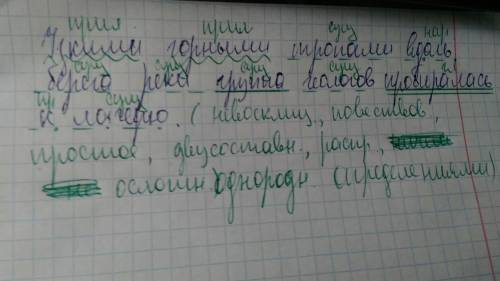 прил. прил. сущ. нар.
Узкими горными тропами вдоль
сущ. сущ. сущ. сущ. г.
берега реки группа геологов пробиралась
пр. сущ.
к лагерю. (невосклиц., повествов.,
простое, двусоставн., распр.,
осложенн. однородн. определениями)